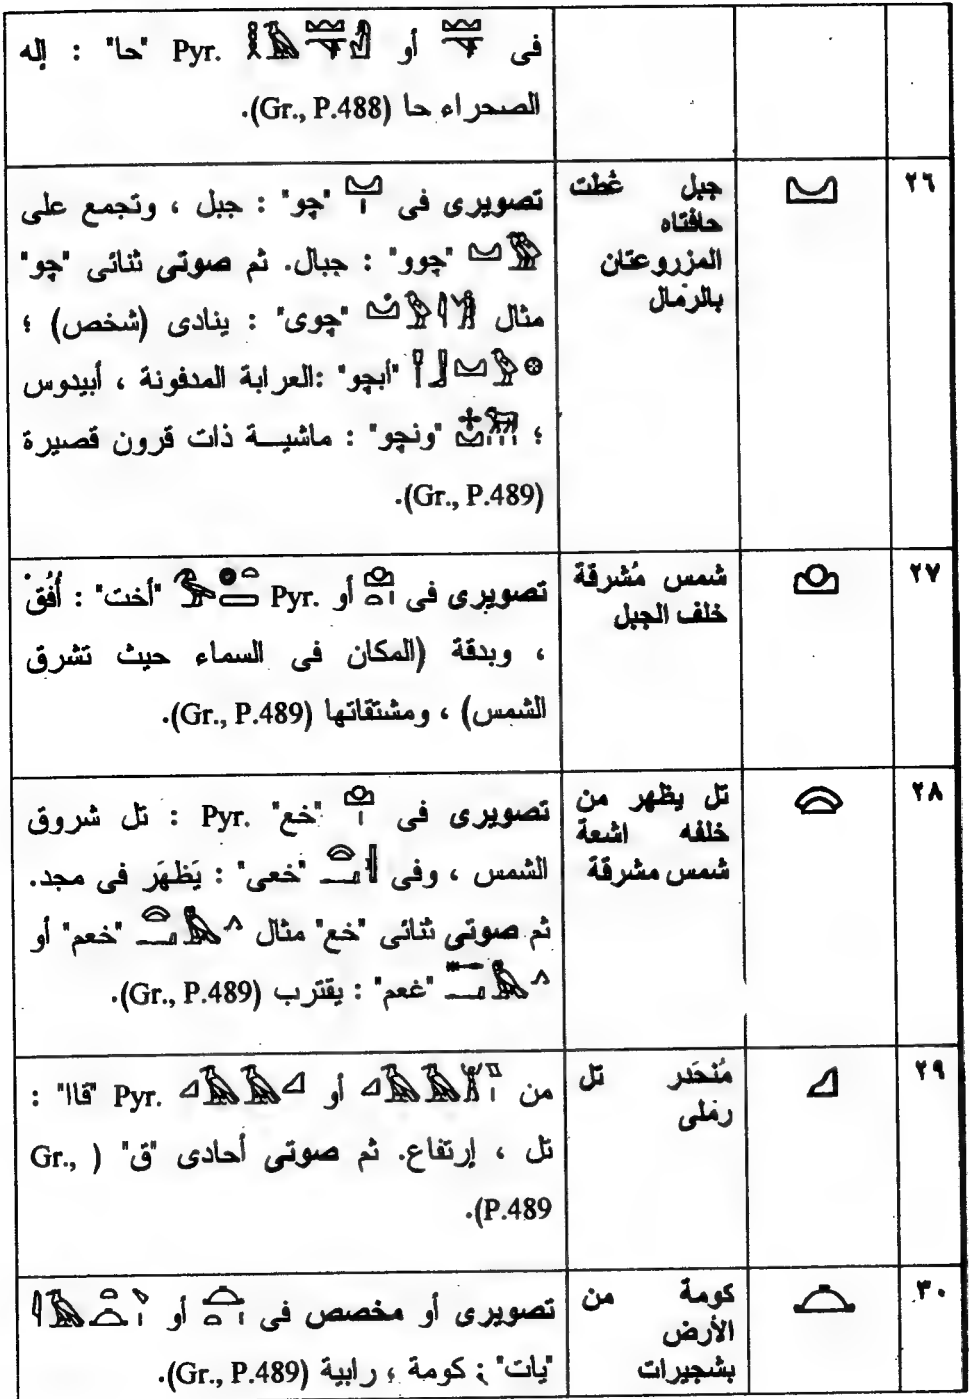 فى 𓈊 أو Pyr. "حا" : إله
الصحراء حا (Gr., P.488).
٢٦
جبل غُطت
حافتاه
المزروعتان
بالرمال
تصويرى فى "چو" : جبل ، وتجمع على
"چوو" : جبال. ثم صوتى ثنائى "چو"
مثال "چوى" : ينادى (شخص) ؛
"أبچو" :العرابة المدفونة ، أبيدوس
؛ "ونچو" : ماشيـــة ذات قرون قصيرة
(Gr., P.489).
٢٧
شمس مُشرقة
خلف الجبل
تصويرى فى أو Pyr. "أخت" : أُفُقْ
، وبدقة (المكان فى السماء حيث تشرق
الشمس) ، ومشتقاتها (Gr., P.489).
٢٨
تل يظهر من
خلفه اشعة
شمس مشرقة
تصويرى فى "خع" Pyr. : تل شروق
الشمس ، وفى "خعى" : يَظهَر فى مجد.
ثم صوتى ثنائى "خع" مثال "خعم" أو
"غعم" : يقترب (Gr., P.489).
٢٩
مُنحَدر تل
رملى
من أو Pyr. "قاا" :
تل ، إرتفاع. ثم صوتى أحادى "ق" ( Gr.,
P.489).
٣٠
كومة من
الأرض
بشجيرات
تصويرى أو مخصص فى أو
"يات" : كومة ، رابية (Gr., P.489).